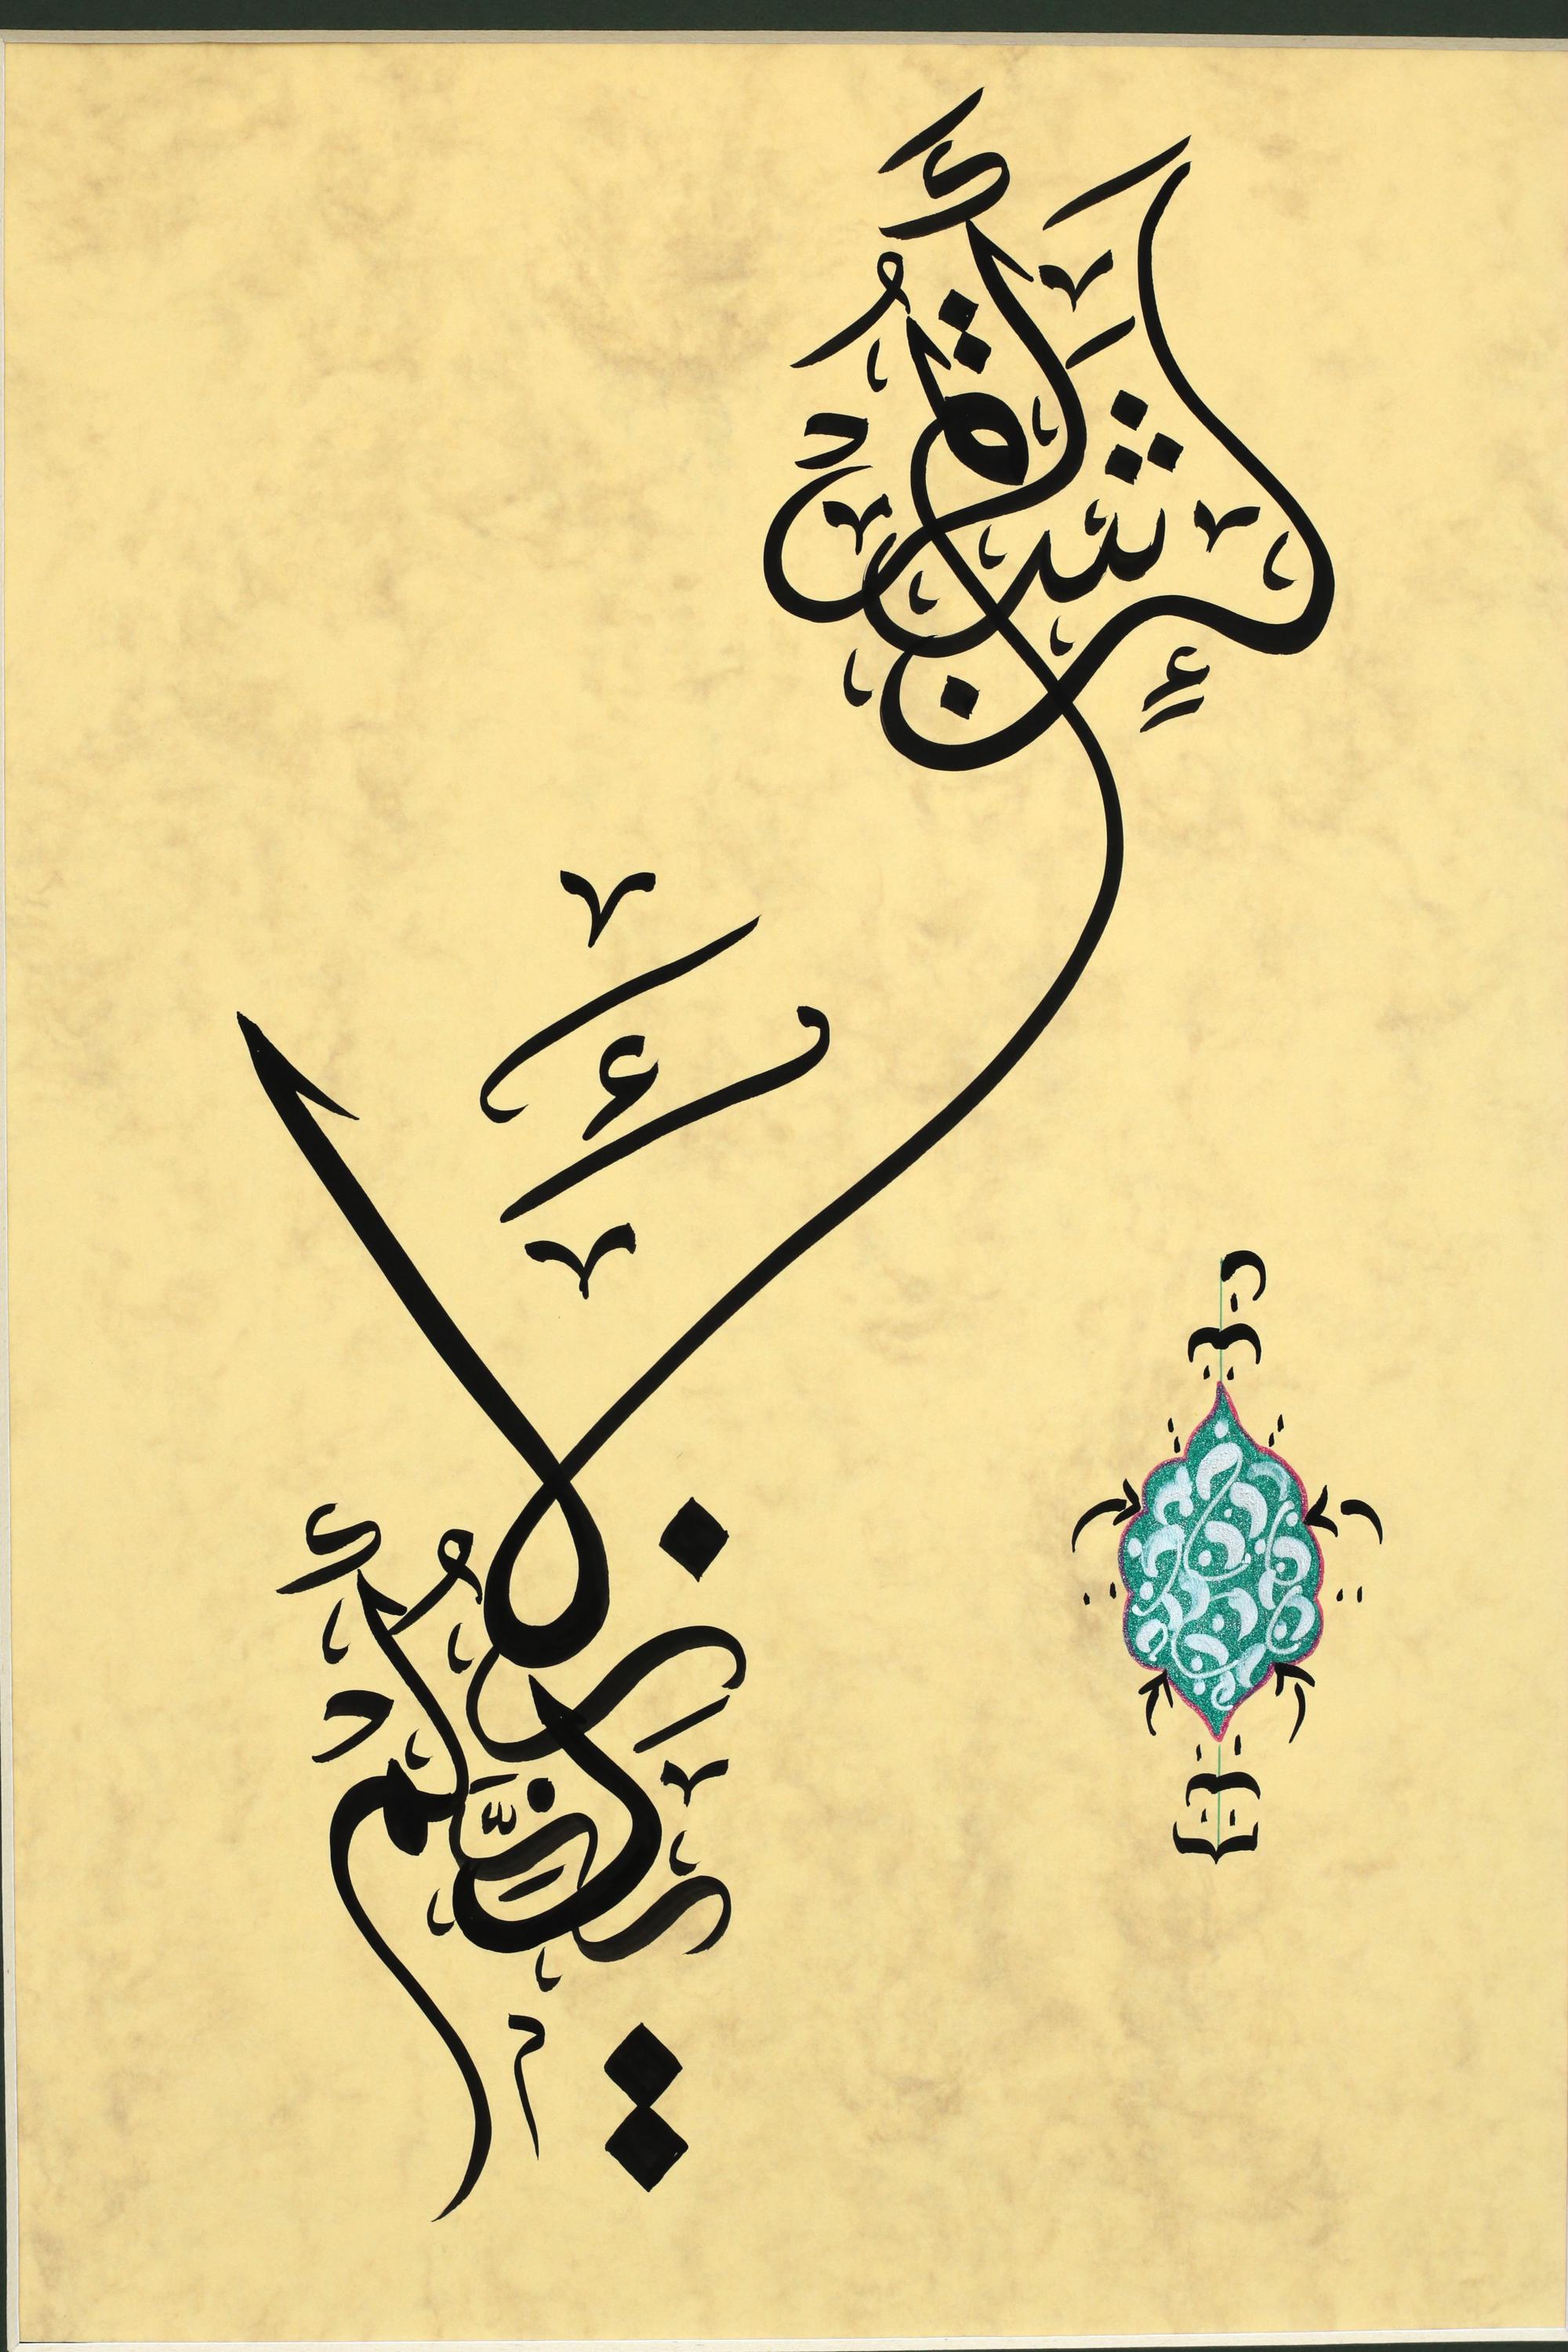 لَئِنْ شَكَرْتُمْ
لَأَزِيدَنَّكُمْ